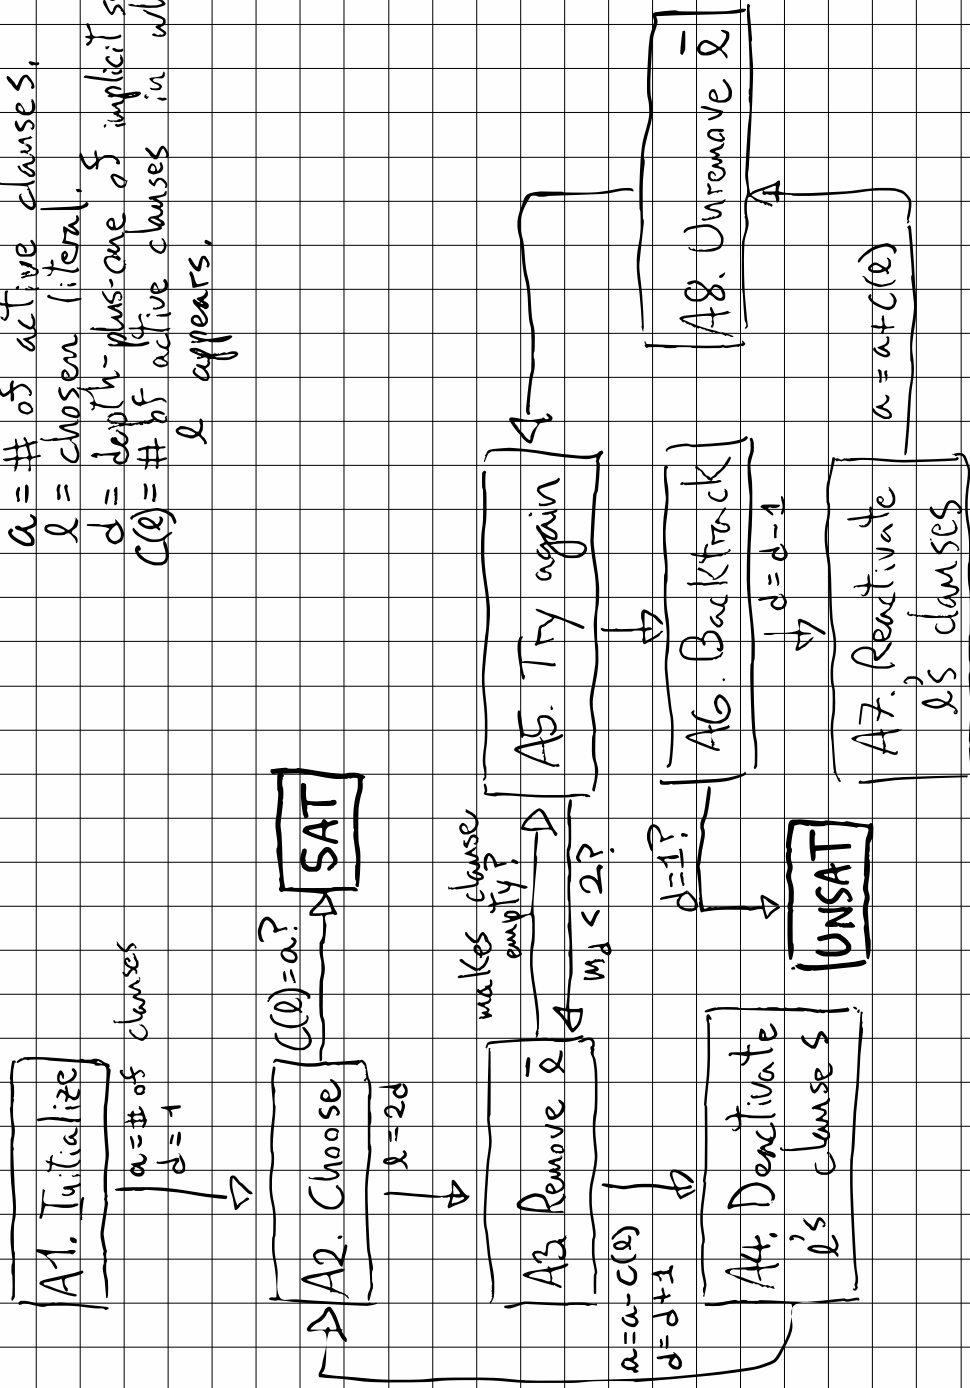 a = # of active clauses.
l = chosen literal.
d = depth-plus-one of implicit
C(l) = # of active clauses in
l appears.
A1. Initialize
a = # of clauses
d = 1
A2. Choose
C(l) = a?
SAT
l = 2d
A3. Remove l̄
makes clause
empty?
m_d < 2?
A5. Try again
a = a - C(l)
d = d + 1
A4. Deactivate
l's clauses
d = 1?
UNSAT
A6. Backtrack
d = d - 1
A7. Reactivate
l's clauses
a = a + C(l)
A8. Unremove l̄